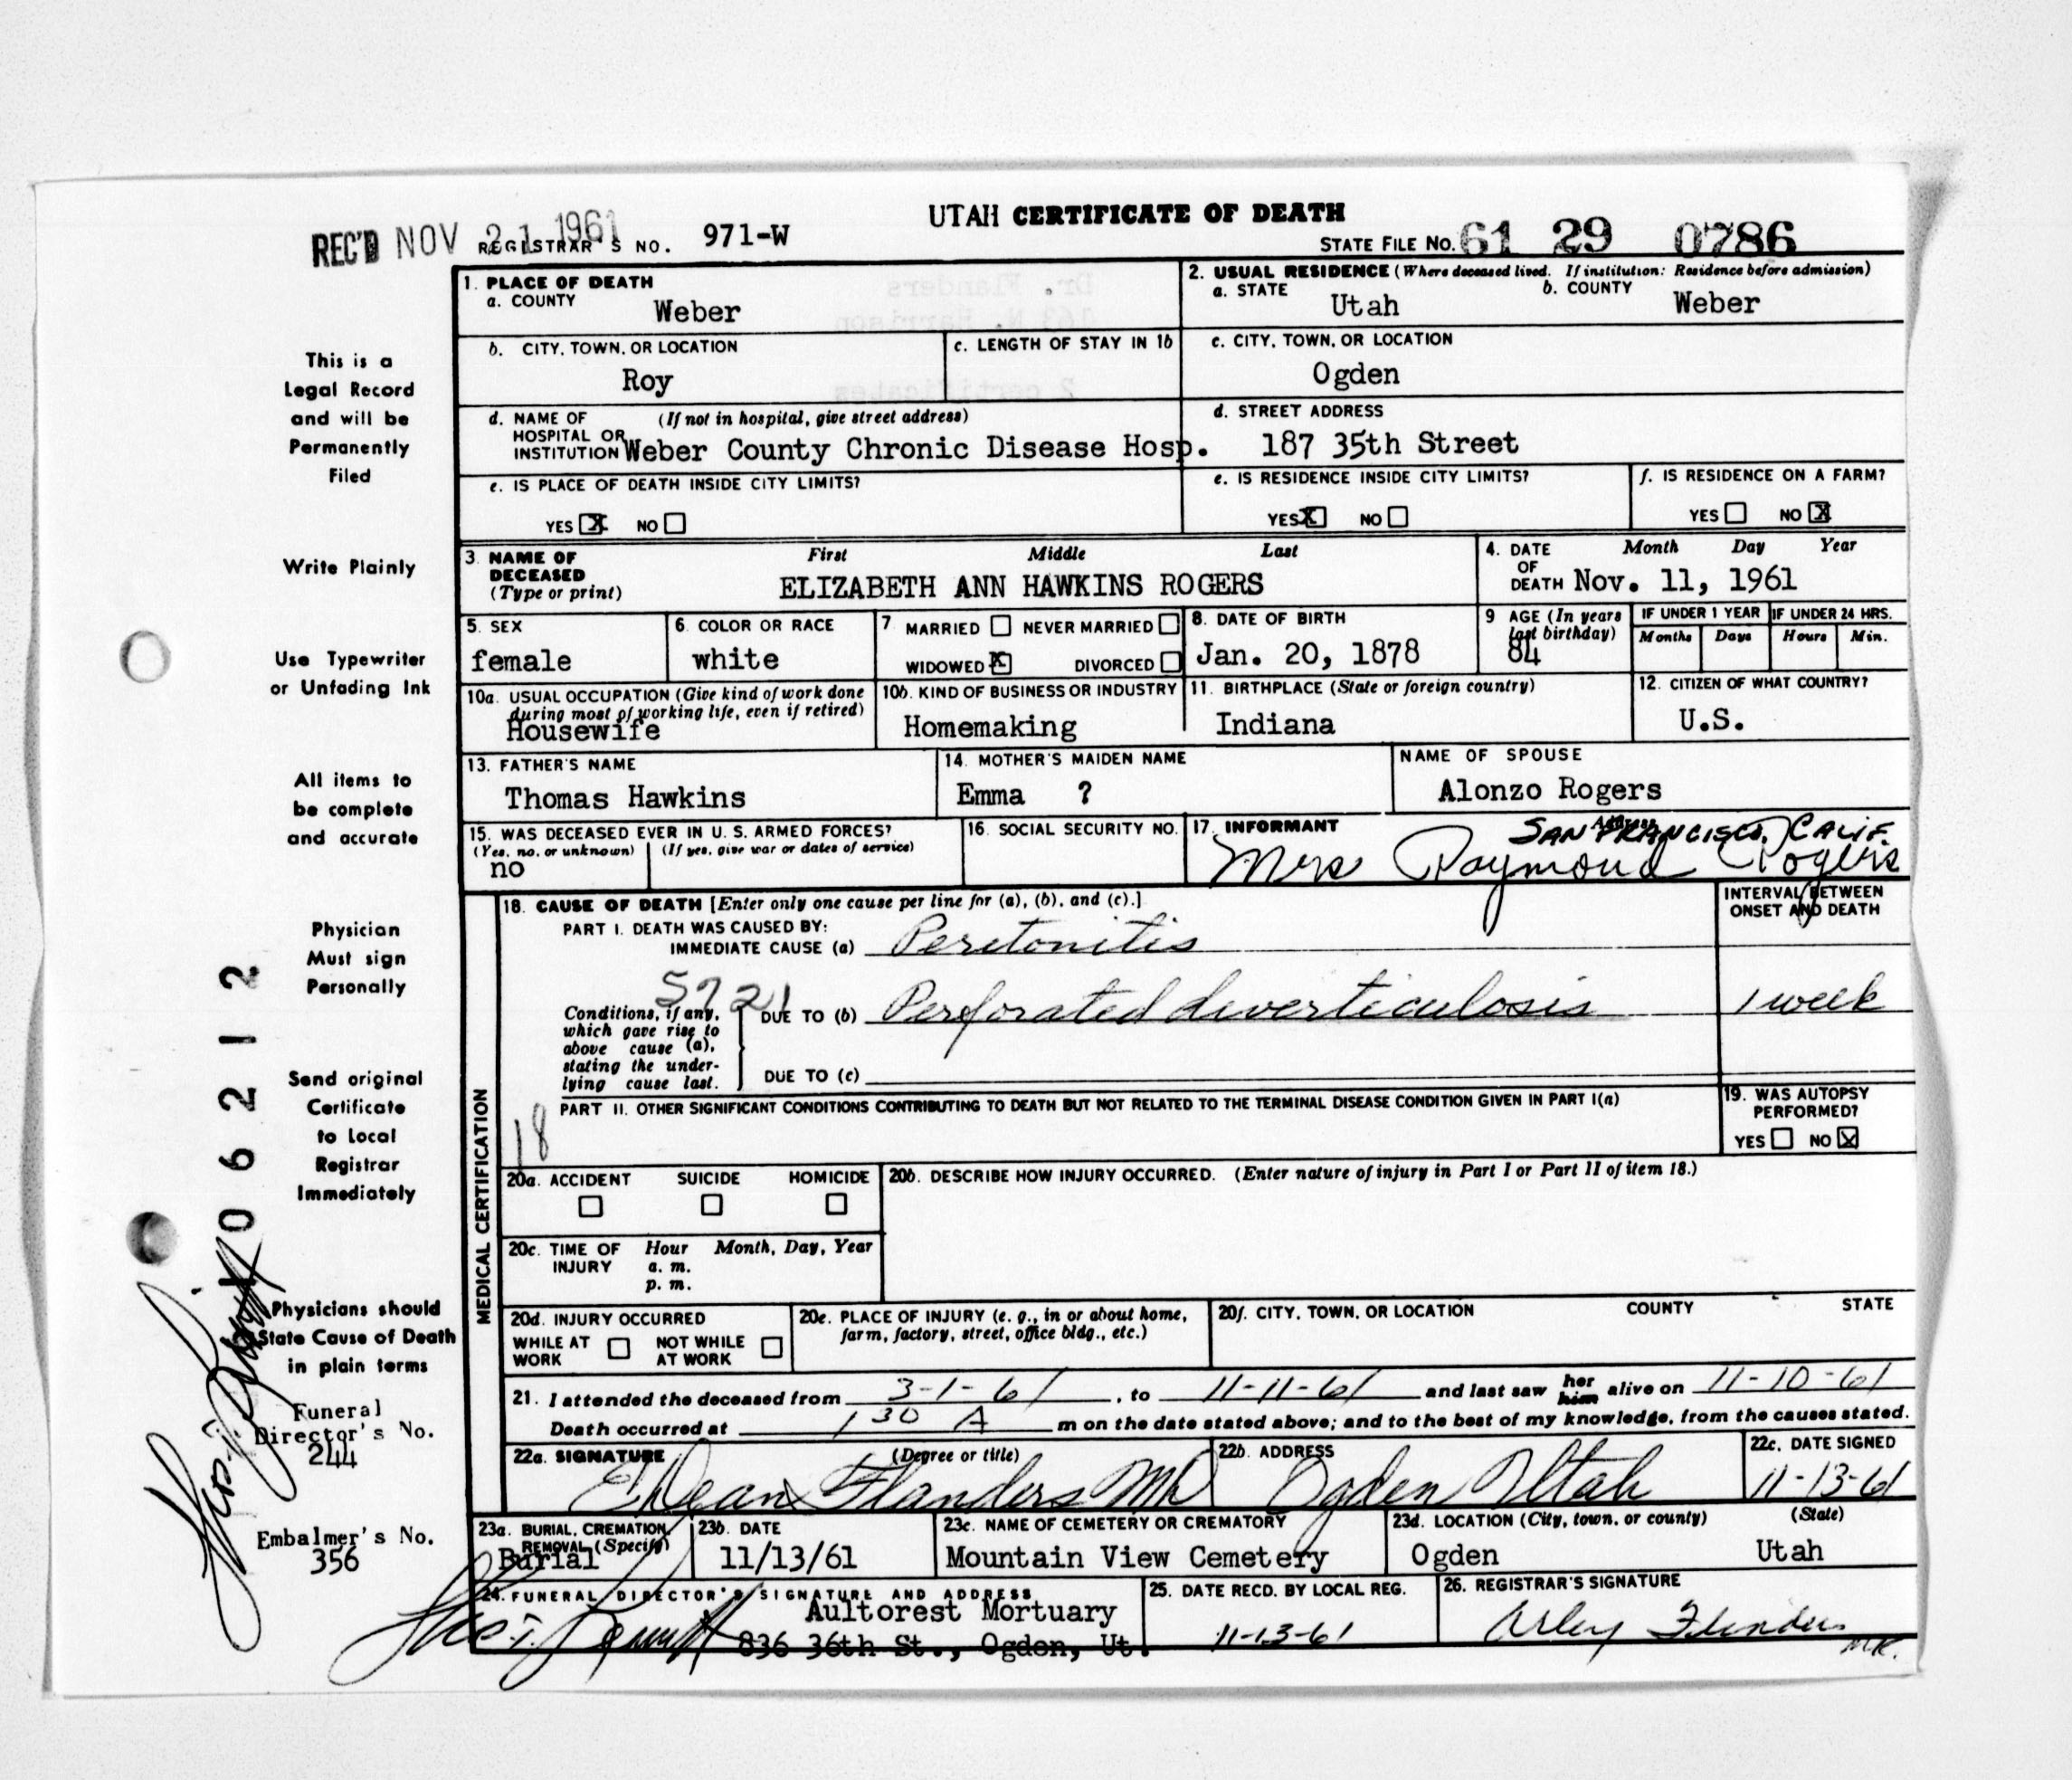 UTAH CERTIFICATE OF DEATH
REC'D NOV 21 1961 REGISTRAR'S NO. 971-W STATE FILE NO. 61 29 0786
This is a
Legal Record
and will be
Permanently
Filed
Write Plainly
Use Typewriter
or Unfading Ink
All items to
be complete
and accurate
Physician
Must sign
Personally
Send original
Certificate
to Local
Registrar
Immediately
Physicians should
State Cause of Death
in plain terms
Funeral
Director's No.
244
Embalmer's No.
356
06212
1. PLACE OF DEATH
a. COUNTY
Weber
2. USUAL RESIDENCE (Where deceased lived. If institution: Residence before admission)
a. STATE Utah b. COUNTY Weber
b. CITY, TOWN, OR LOCATION
Roy
c. LENGTH OF STAY IN 1b
c. CITY, TOWN, OR LOCATION
Ogden
d. NAME OF (If not in hospital, give street address)
HOSPITAL OR
INSTITUTION Weber County Chronic Disease Hosp.
d. STREET ADDRESS
187 35th Street
e. IS PLACE OF DEATH INSIDE CITY LIMITS?
YES X NO
e. IS RESIDENCE INSIDE CITY LIMITS?
YES X NO
f. IS RESIDENCE ON A FARM?
YES NO X
3. NAME OF First Middle Last
DECEASED
(Type or print) ELIZABETH ANN HAWKINS ROGERS
4. DATE Month Day Year
OF
DEATH Nov. 11, 1961
5. SEX
female
6. COLOR OR RACE
white
7 MARRIED NEVER MARRIED
WIDOWED X DIVORCED
8. DATE OF BIRTH
Jan. 20, 1878
9 AGE (In years
last birthday)
84
IF UNDER 1 YEAR IF UNDER 24 HRS.
Months Days Hours Min.
10a. USUAL OCCUPATION (Give kind of work done
during most of working life, even if retired)
Housewife
10b. KIND OF BUSINESS OR INDUSTRY
Homemaking
11. BIRTHPLACE (State or foreign country)
Indiana
12. CITIZEN OF WHAT COUNTRY?
U.S.
13. FATHER'S NAME
Thomas Hawkins
14. MOTHER'S MAIDEN NAME
Emma ?
NAME OF SPOUSE
Alonzo Rogers
15. WAS DECEASED EVER IN U. S. ARMED FORCES?
(Yes, no, or unknown) (If yes, give war or dates of service)
no
16. SOCIAL SECURITY NO.
17. INFORMANT Address
SAN FRANCISCO, CALIF.
Mrs Raymond Rogers
MEDICAL CERTIFICATION
18. CAUSE OF DEATH [Enter only one cause per line for (a), (b), and (c).]
INTERVAL BETWEEN
ONSET AND DEATH
PART I. DEATH WAS CAUSED BY:
IMMEDIATE CAUSE (a) Peretonitis
5721
Conditions, if any,
which gave rise to
above cause (a),
stating the under-
lying cause last.
DUE TO (b) Perforated diverticulosis 1 week
DUE TO (c)
PART II. OTHER SIGNIFICANT CONDITIONS CONTRIBUTING TO DEATH BUT NOT RELATED TO THE TERMINAL DISEASE CONDITION GIVEN IN PART I(a)
18
19. WAS AUTOPSY
PERFORMED?
YES NO X
20a. ACCIDENT SUICIDE HOMICIDE
20b. DESCRIBE HOW INJURY OCCURRED. (Enter nature of injury in Part I or Part II of item 18.)
20c. TIME OF Hour Month, Day, Year
INJURY a. m.
p. m.
20d. INJURY OCCURRED
WHILE AT NOT WHILE
WORK AT WORK
20e. PLACE OF INJURY (e. g., in or about home,
farm, factory, street, office bldg., etc.)
20f. CITY, TOWN, OR LOCATION COUNTY STATE
21. I attended the deceased from 3-1-61, to 11-11-61 and last saw her him alive on 11-10-61
Death occurred at 1 30 A m on the date stated above; and to the best of my knowledge, from the causes stated.
22a. SIGNATURE (Degree or title)
E Dean Flanders MD
22b. ADDRESS
Ogden Utah
22c. DATE SIGNED
11-13-61
23a. BURIAL, CREMATION,
REMOVAL (Specify)
Burial
23b. DATE
11/13/61
23c. NAME OF CEMETERY OR CREMATORY
Mountain View Cemetery
23d. LOCATION (City, town, or county) (State)
Ogden Utah
24. FUNERAL DIRECTOR'S SIGNATURE AND ADDRESS
Aultorest Mortuary
836 36th St., Ogden, Ut.
25. DATE RECD. BY LOCAL REG.
11-13-61
26. REGISTRAR'S SIGNATURE
Arley Flinders
MR.